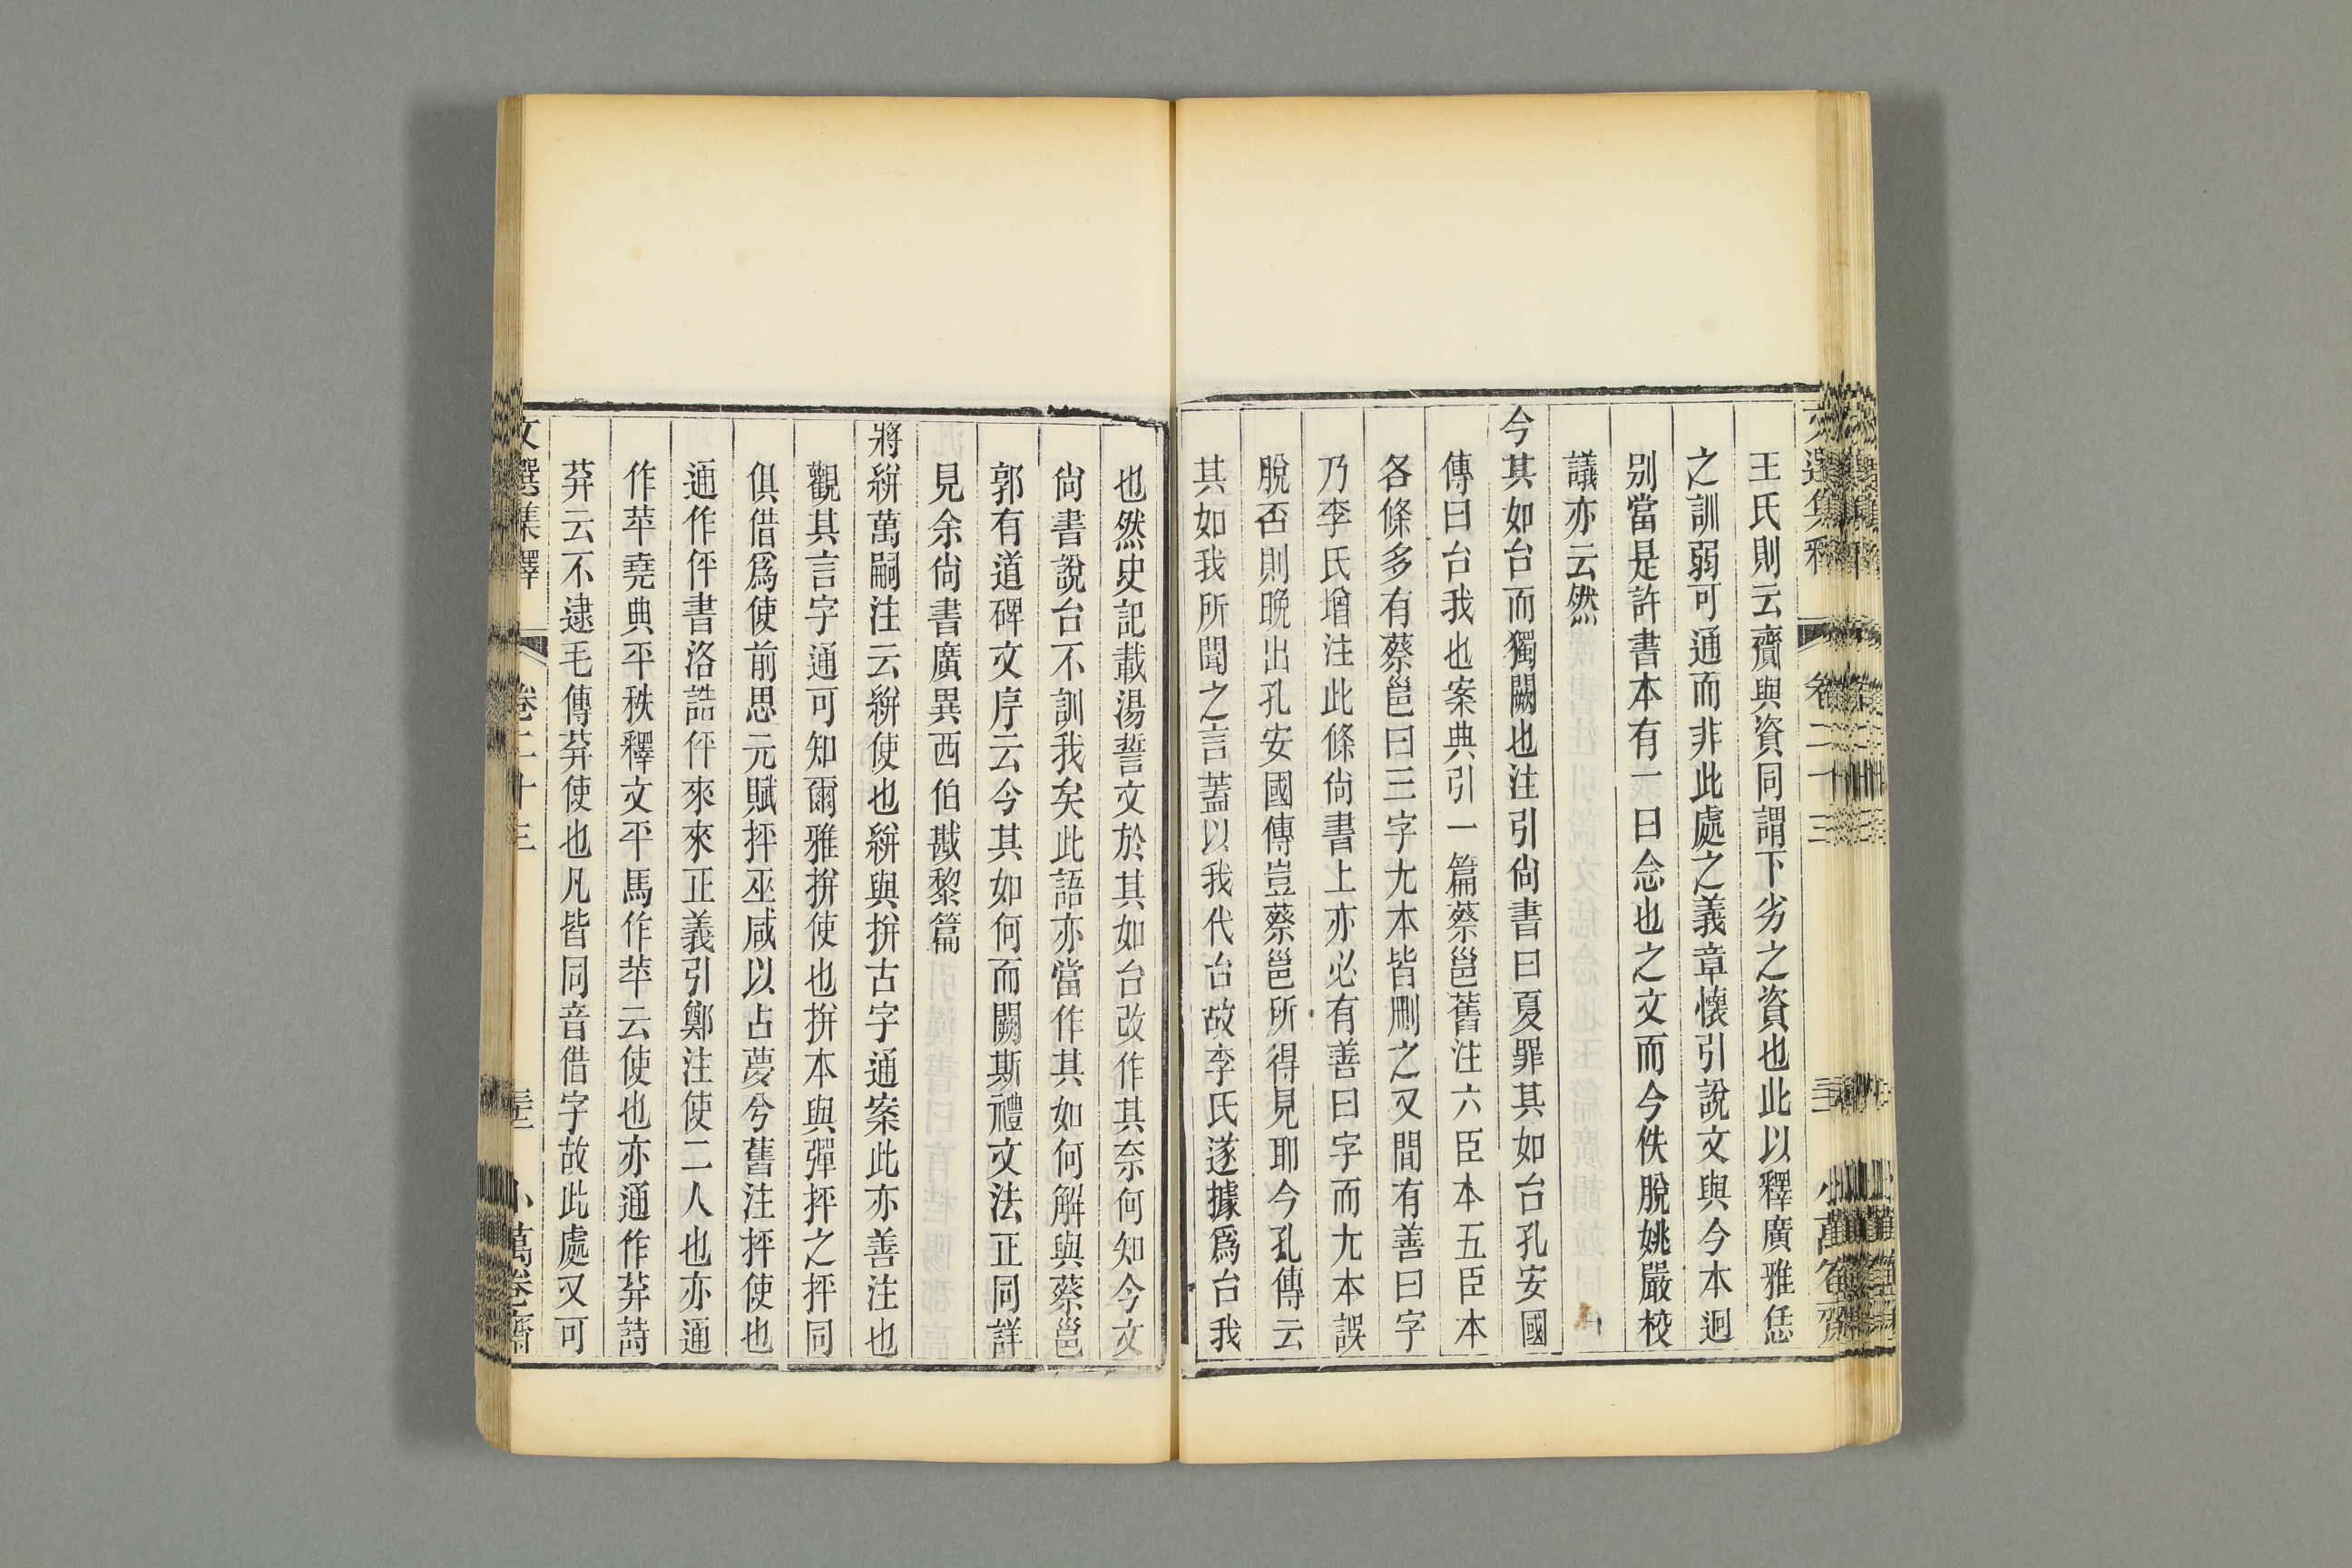 王氏則云賷與資同謂下劣之資也此以釋廣雅恁
之訓弱可通而非此處之義章懷引說文與今本迥
别當是許書本有一曰念也之文而今佚脫姚嚴校
議亦云然
今其如台而獨闕也注引尙書曰夏罪其如台孔安國
傳曰台我也案典引一篇蔡邕舊注六臣本五臣本
各條多有蔡邕曰三字尤本皆刪之又間有善曰字
乃李氏增注此條尙書上亦必有善曰字而尤本誤
脫否則晚出孔安國傳豈蔡邕所得見耶今孔傳云
其如我所聞之言蓋以我代台故李氏遂據爲台我
也然史記載湯誓文於其如台改作其奈何知今文
尙書說台不訓我矣此語亦當作其如何解與蔡邕
郭有道碑文序云今其如何而闕斯禮文法正同詳
見余尙書廣異西伯戡黎篇
將絣萬嗣注云絣使也絣與拼古字通案此亦善注也
觀其言字通可知爾雅拼使也拼本與彈抨之抨同
俱借爲使前思元賦抨巫咸以占夢兮舊注抨使也
通作伻書洛誥伻來來正義引鄭注使二人也亦通
作苹堯典平秩釋文平馬作苹云使也亦通作荓詩
荓云不逮毛傳荓使也凡皆同音借字故此處又可
文選集釋 卷二十三 小萬卷齋